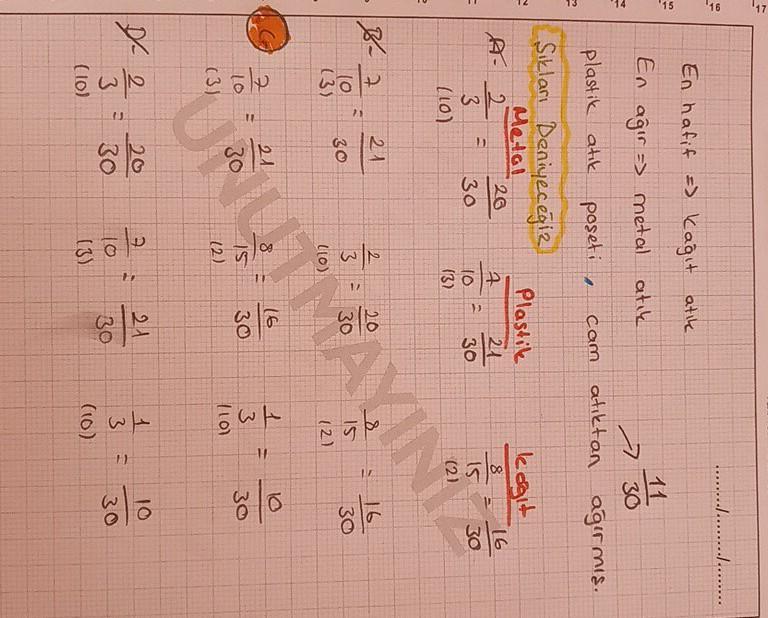 17 16 15 14 13 12 11
......../......../........
En hafif => kağıt atık
En ağır => metal atık
11/30
plastik atık poşeti, cam atıktan ağırmış.
Şıkları Deniyeceğiz
Metal Plastik kağıt
A- 2/3 = 20/30 7/10 = 21/30 8/15 = 16/30
(10) (3) (2)
B- 7/10 = 21/30 2/3 = 20/30 8/15 = 16/30
(3) (10) (2)
C- 7/10 = 21/30 8/15 = 16/30 1/3 = 10/30
(3) (2) (10)
D- 2/3 = 20/30 7/10 = 21/30 1/3 = 10/30
(10) (3) (10)
UNUTMAYINIZ